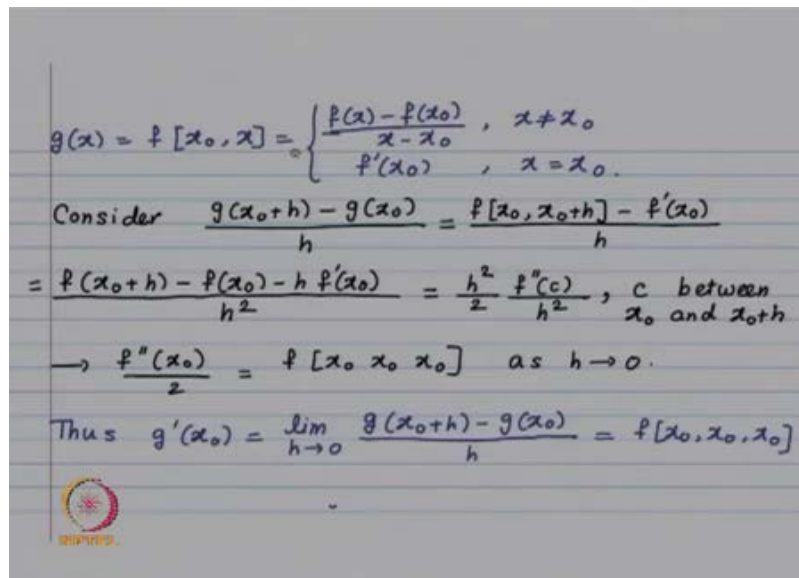 g(x) = f [x₀, x] = { (f(x) - f(x₀))/(x - x₀) , x ≠ x₀
f'(x₀) , x = x₀.
Consider (g(x₀+h) - g(x₀))/h = (f[x₀, x₀+h] - f'(x₀))/h
= (f(x₀+h) - f(x₀) - h f'(x₀))/h² = h²/2 f"(c)/h² , c between x₀ and x₀+h
→ f"(x₀)/2 = f [x₀ x₀ x₀] as h → 0.
Thus g'(x₀) = lim h→0 (g(x₀+h) - g(x₀))/h = f[x₀, x₀, x₀]
NPTEL